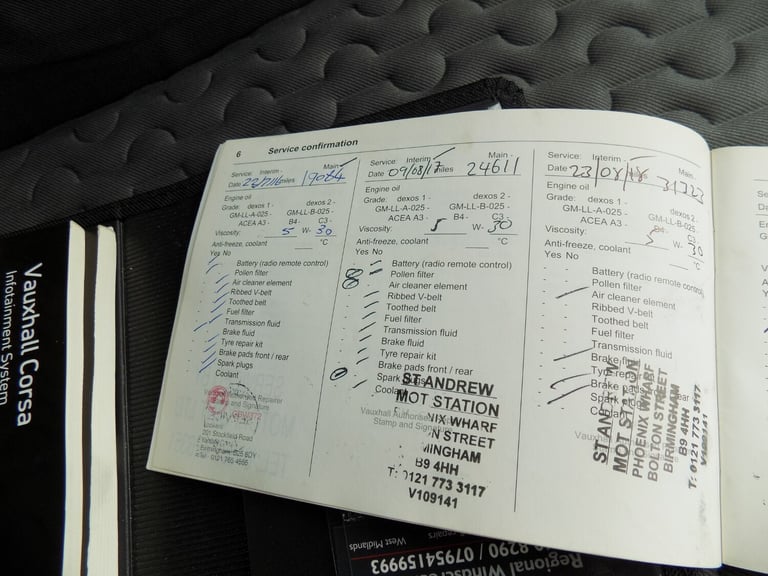 6 Service confirmation
Service: Interim - Main -
Date 22/7/16 miles 19084
Engine oil
Grade: dexos 1 - dexos 2 -
GM-LL-A-025 - GM-LL-B-025 -
ACEA A3 - B4 - C3 -
Viscosity: 5 W- 30
Anti-freeze, coolant °C
Yes No
Battery (radio remote control)
Pollen filter
Air cleaner element
Ribbed V-belt
Toothed belt
Fuel filter
Transmission fluid
Brake fluid
Tyre repair kit
Brake pads front / rear
Spark plugs
Coolant
Service: Interim - Main -
Date 09/08/17 24611
Engine oil
Grade: dexos 1 - dexos 2 -
GM-LL-A-025 - GM-LL-B-025 -
ACEA A3 - B4 - C3 -
Viscosity: 5 W- 30
Anti-freeze, coolant °C
Yes No
Battery (radio remote control)
Pollen filter
Air cleaner element
Ribbed V-belt
Toothed belt
Fuel filter
Transmission fluid
Brake fluid
Tyre repair kit
Brake pads front / rear
Spark
Coolant
Vauxhall Authorised
Stamp and Signature
ST ANDREW
MOT STATION
NIX WHARF
N STREET
MINGHAM
B9 4HH
T: 0121 773 3117
V109141
Service: Interim - Main -
Date 23/08/18 31323
Engine oil
Grade: dexos 1 - dexos 2 -
GM-LL-A-025 - GM-LL-B-025 -
ACEA A3 - B4 - C3 -
Viscosity: 5 W- 30
Anti-freeze, coolant °C
Yes No
Battery (radio remote control)
Pollen filter
Air cleaner element
Ribbed V-belt
Toothed belt
Fuel filter
Transmission fluid
Brake
Brake pads
Spark
MOT STATION
PHOENIX WHARF
BOLTON STREET
BIRMINGHAM
B9 4HH
T: 0121 773 3117
V109141
Vauxhall Corsa
Infotainment System
West Midlands
8290 / 07954159993
Regional